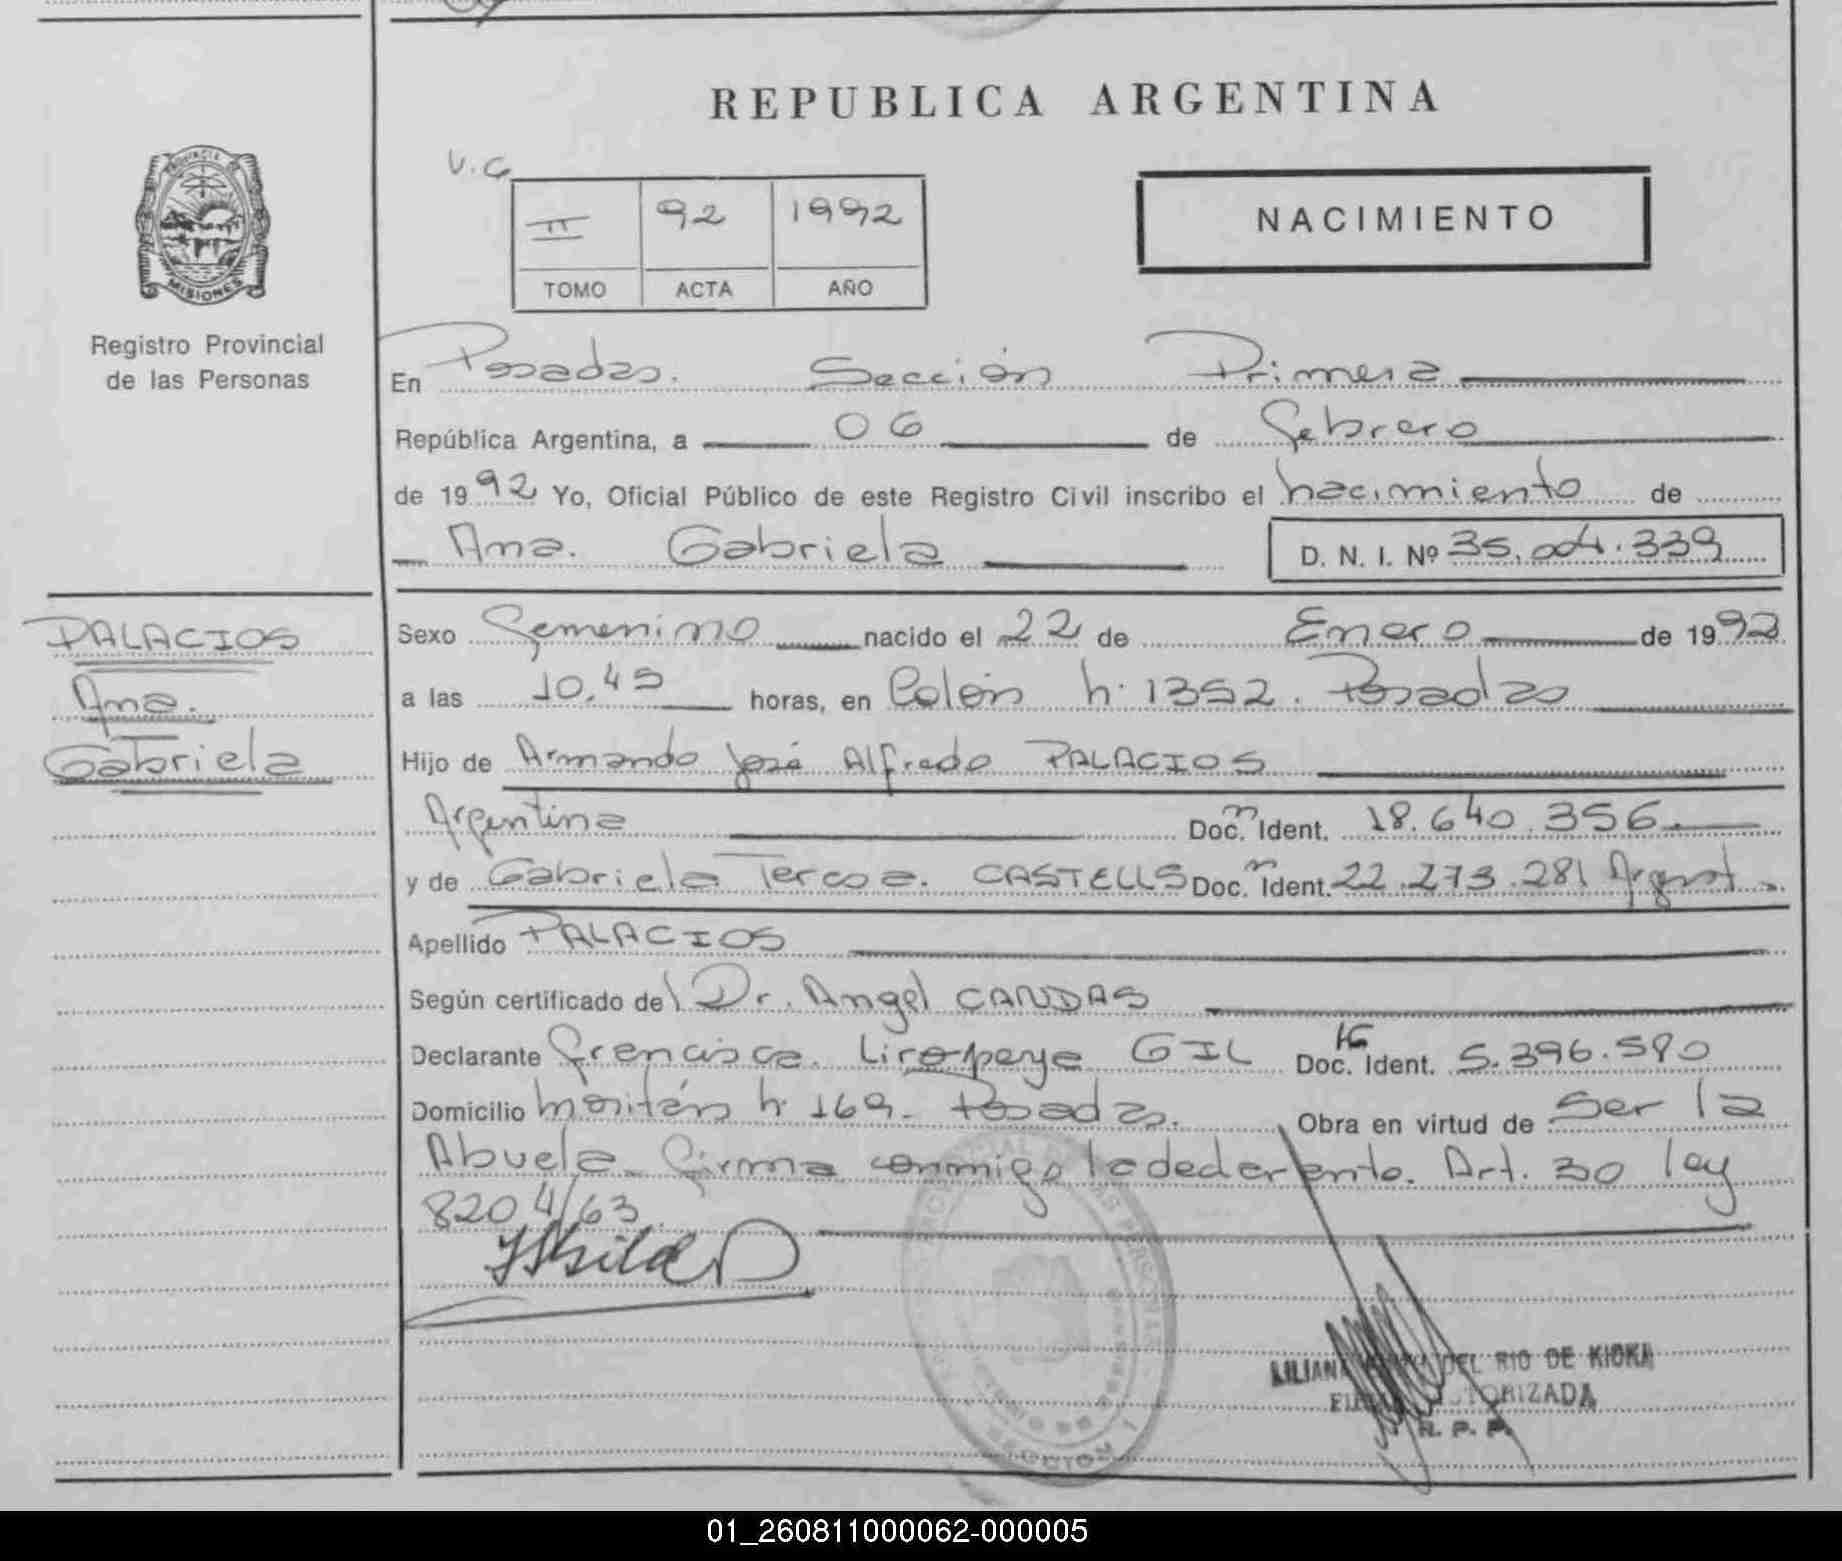 REPUBLICA ARGENTINA
V.C.
II 92 1992
TOMO ACTA AÑO
NACIMIENTO
PROVINCIA
MISIONES
Registro Provincial
de las Personas
En Posadas. Sección Primera
República Argentina, a 06 de Febrero
de 1992 Yo, Oficial Público de este Registro Civil inscribo el nacimiento de
Ana. Gabriela D. N. I. Nº 35.004.339
PALACIOS
Ana.
Gabriela
Sexo Femenino nacido el 22 de Enero de 1992
a las 10,45 horas, en Colón n: 1352. Posadas
Hijo de Armando José Alfredo PALACIOS
Argentina Doc. Ident. 18.640.356.
y de Gabriela Teresa. CASTELLS Doc. Ident. 22.273.281 Argent.
Apellido PALACIOS
Según certificado del Dr. Angel CANDAS
Declarante Francisca. Liropeya GIL Doc. Ident. 5.396.590
Domicilio n: 169. Posadas. Obra en virtud de Ser la
Abuela. Firma conmigo Art. 30 ley
8204/63.
LILIANA DEL RIO DE KIOKA
AUTORIZADA
R. P. P.
01_260811000062-000005